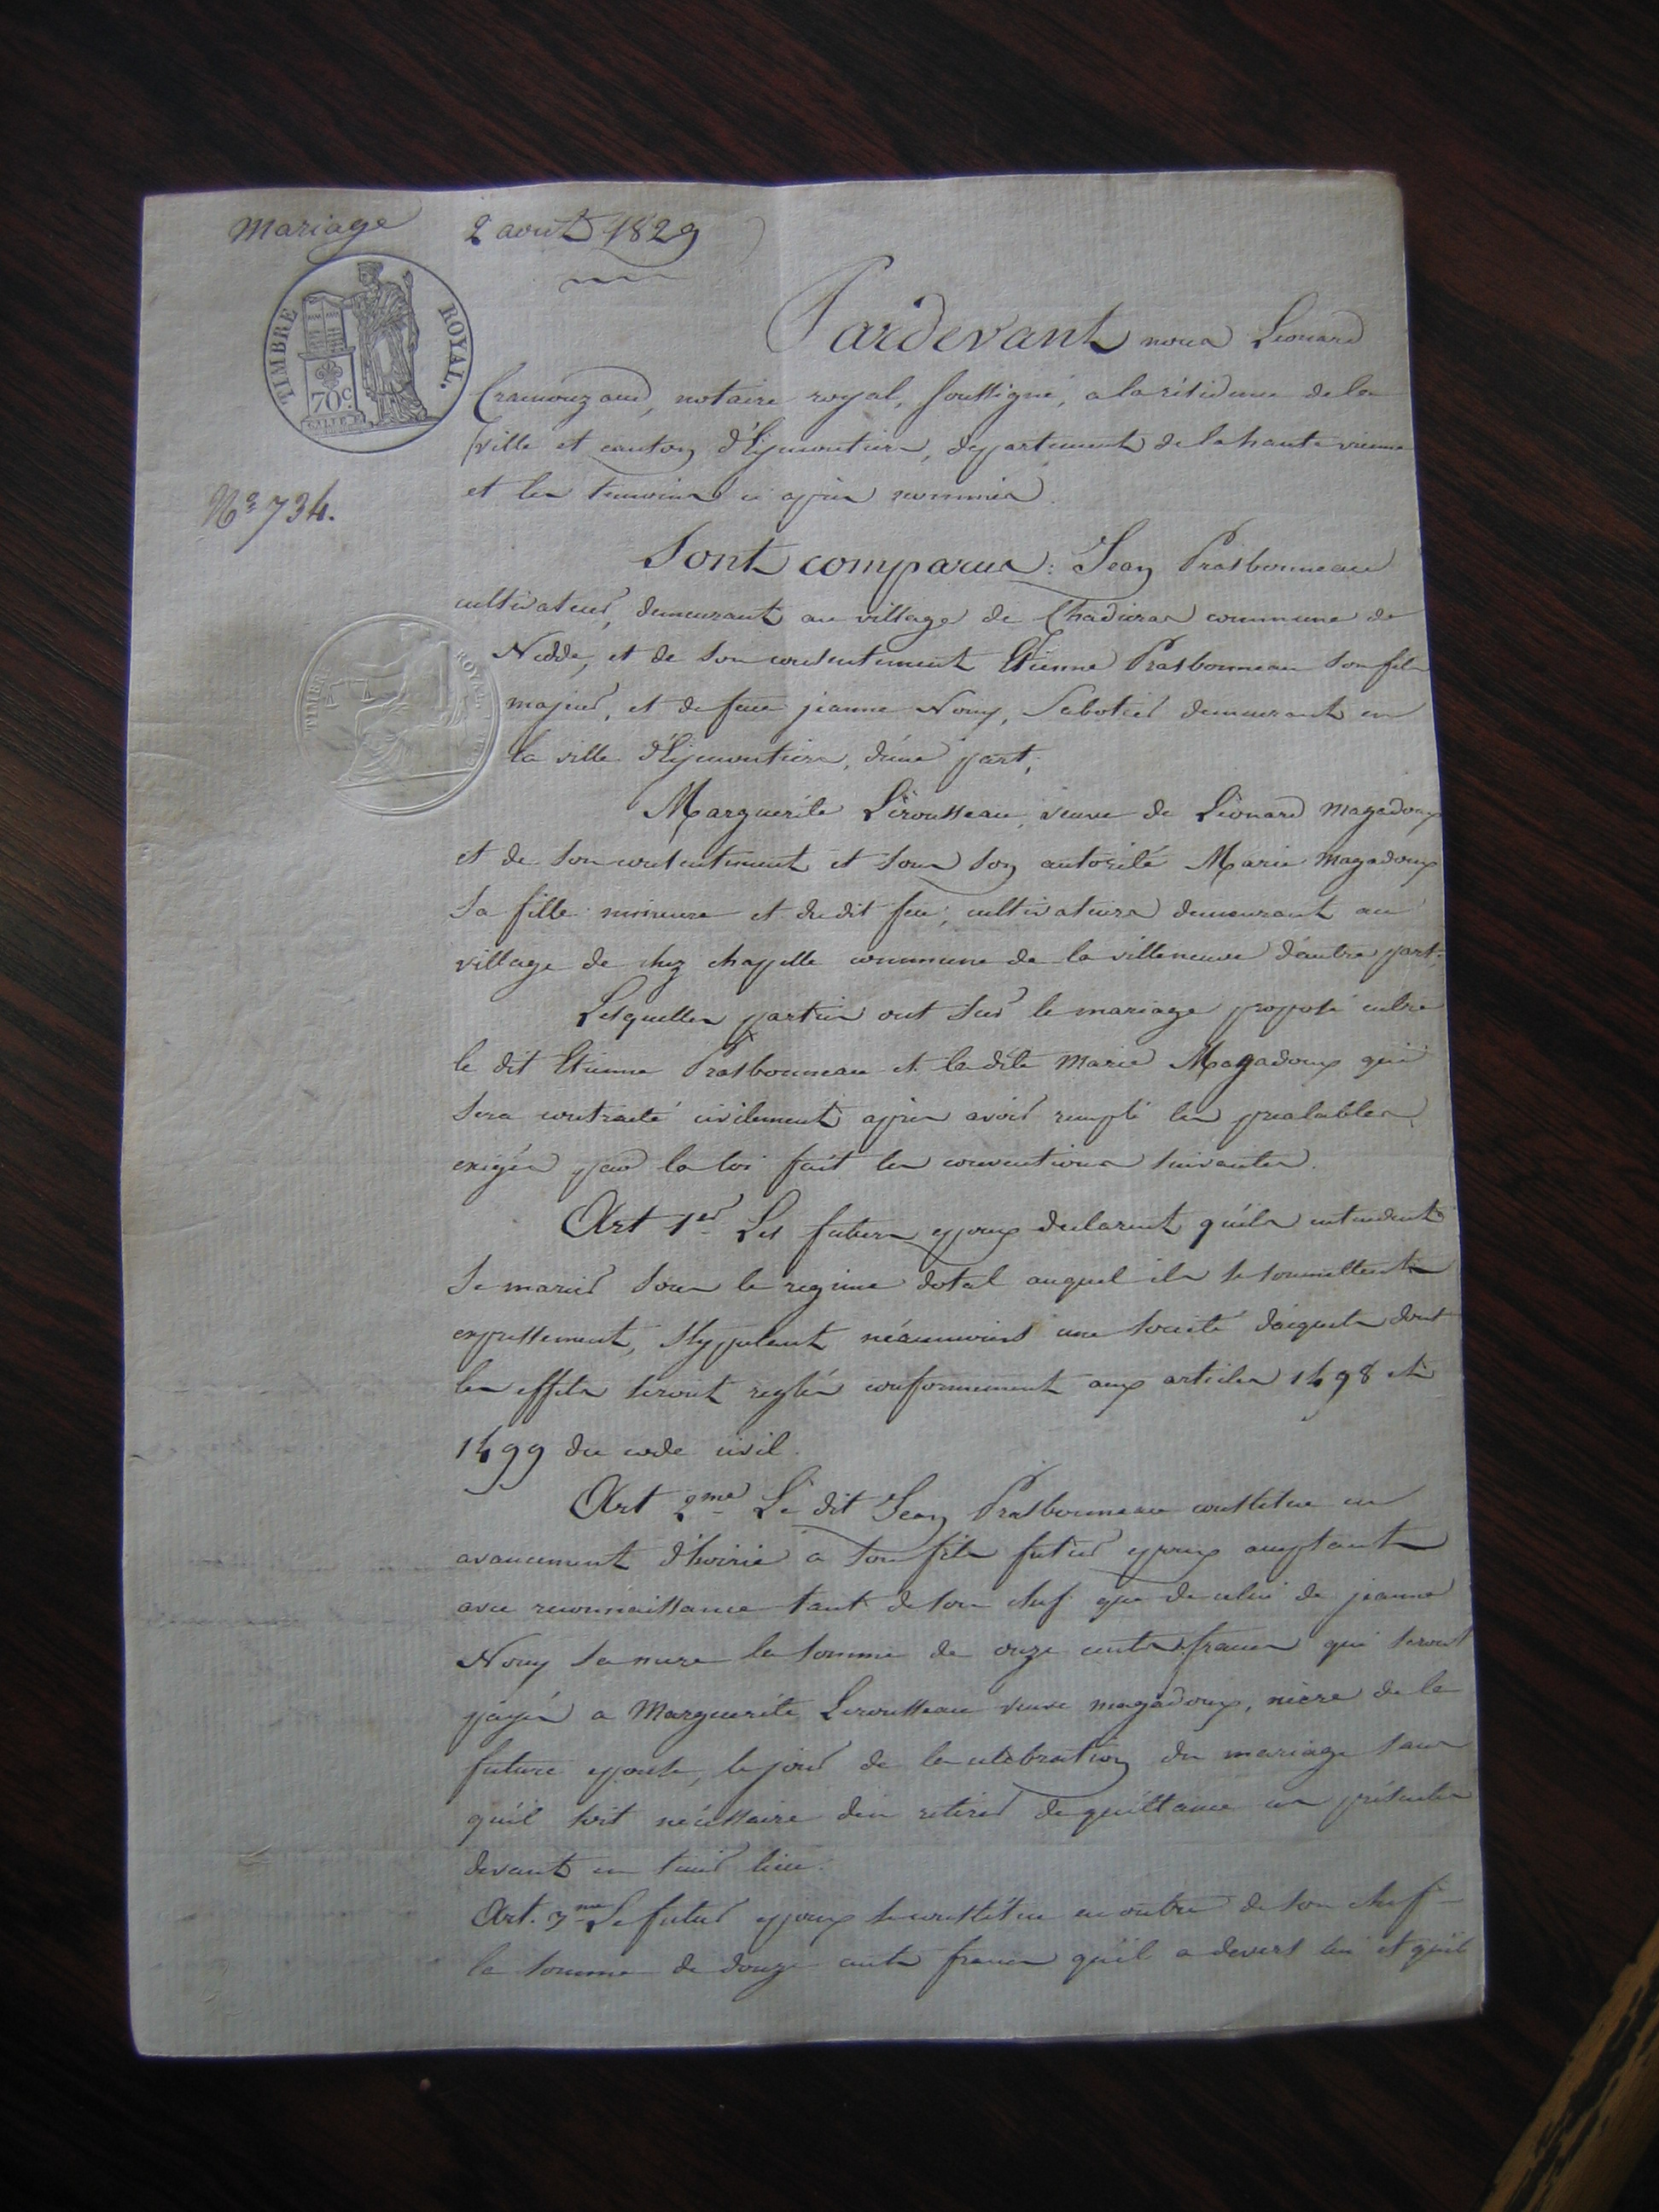 Mariage 2 aout 1829
TIMBRE ROYAL.
70c.
Pardevant nous Léonard
Cramouzaud, notaire royal, soussigné, a la résidence de la
ville et canton d'Eymoutiers, departement de la haute vienne
et les temoins ci après nommés.
N° 734.
Sont comparus : Jean Prasbonneau
cultivateur, demeurant au village de Chadieras commune de
Nedde, et de son consentement Etienne Prasbonneau son fils
majeur, et de feue jeanne Nouy, Sabotier demeurant en
la ville d'Eymoutiers, d'une part,
TIMBRE ROYAL
Marguerite Lérousseau, veuve de Léonard Magadoux
et de son consentement et sous son autorité Marie Magadoux
sa fille mineure et du dit feu, cultivateurs demeurant au
village de chez chapelle commune de la villeneuve d'autre part;
Lesquelles parties ont sur le mariage proposé entre
le dit Etienne Prasbonneau et la dite Marie Magadoux qui
sera contracté civilement après avoir rempli les prealables
exigés par la loi fait les conventions suivantes.
Art 1er Les futurs epoux declarent qu'ils entendent
se marier sous le regime dotal auquel ils se soumettent
expressement, stypulent néanmoins une société d'aquets dont
les effets seront reglés conformement aux articles 1498 et
1499 du code civil.
Art 2me Le dit Jean Prasbonneau constitue en
avancement d'hoirie a son fils futur epoux acceptant
avec reconnaissance tant de son chef que de celui de jeanne
Nouy sa mere la somme de onze cents francs qui seront
payés a Marguerite Lerousseau veuve magadoux, mère de la
future epouse, le jour de la celebration du mariage sans
qu'il soit nécéssaire d'en retirer de quittance ces présentes
devant en tenir lieu.
Art. 3me Le futur epoux se constitue en outre de son chef
la somme de douze cents francs qu'il a devers lui et qu'il